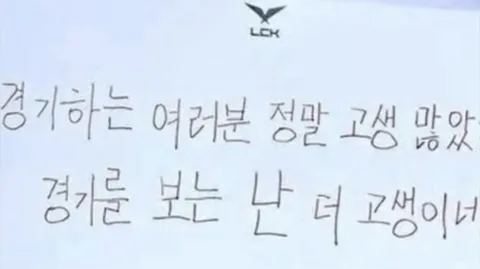 LCK
경기하는 여러분 정말 고생 많았
경기를 보는 난 더 고생이네